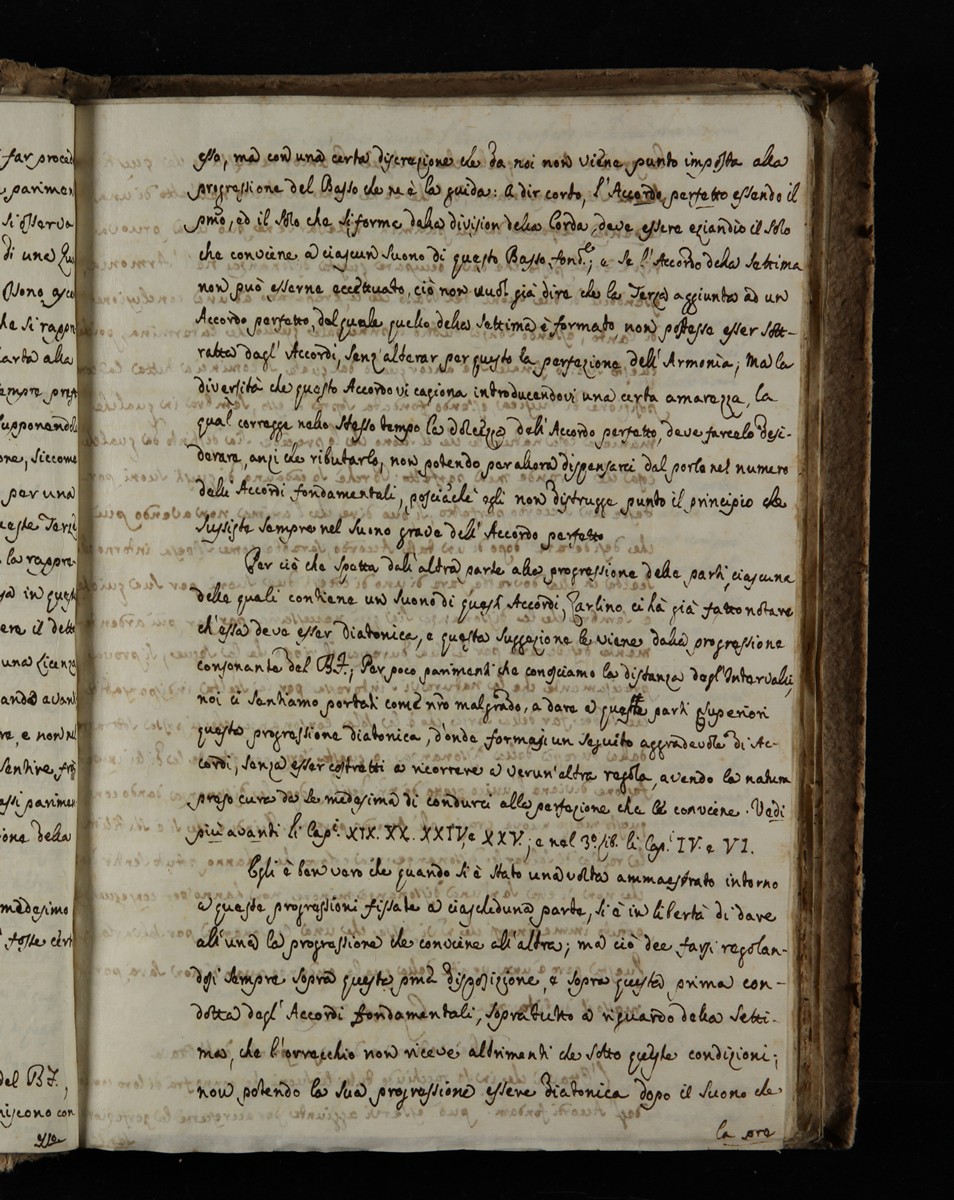 esso, ma con una certa discrezione che da noi non viene punto imposta alla
progressione del Basso che ne è la guida: a dir corto, l'Accordo perfetto essendo il
pmo, ed il solo che si forme dalla division della Corda, deve essere eziandio il solo
che conviene a ciascun suono di questo Basso fond.le; e se l'Accordo della Settima
non può esserne eccettuato, ciò non vuol già dire che la Terza aggiunta ad un
Accordo perfetto, dal quale quello della Settima è formato non potesse esser sott-
ratta dagl' Accordi, senz'alterar per questo la perfezione dell'Armonia; Ma la
diversità che questo Accordo vi cagiona introducendovi una certa amarezza, la
qual corregge nello stesso tempo la dolcezza dell'Accordo perfetto, deve farcelo desi-
derare, anzi che ributarlo, non potendo per allora dispensarci dal porlo nel numero
delli Accordi fondamentali, posciache egli non distrugge punto il principio che
sussiste sempre nel suono grave dell'Accordo perfetto
Per ciò che spetta dall'altra parte alla progressione delle parti, ciascuna
delle quali contiene un suono di questi Accordi, Zarlino ci hà già fatto notare
ch'essa deve esser diatonica, e questa suggezione le viene dalla progressione
consonante del B.F.; Per poco parimenti che conosciamo la distanza degl'Intervalli,
noi ci sentiamo portati come nro malgrado, a dare a queste parti superiori
questa progressione diatonica, d'onde formasi un seguito aggradevole di Ac-
cordi, senza esser costretti a ricorrere a verun'altra regola, avendo la natura
preso cura da se medesima di condurci alla perfezione che le conviene. Vedi
più avanti li Cap.i XIX. XX. XXIV. e XXV.; e nel 3.o lib. li Cap.i IV. e VI.
Egli è ben vero che quando si è stato una volta ammaestrato intorno
a queste progressioni fissate a ciascheduna parte, si è in libertà di dare
all'una la progressione che conviene all'altra; ma ciò dee farsi regolan-
dosi sempre sopra questa pma disposizione, e sopra questa prima con-
dotta degl'Accordi fondamentali, sopratutto a riguardo della Setti-
ma, che l'orrecchio non riceve altrimenti che sotto queste condizioni;
non potendo la sua progressione essere diatonica dopo il suono che
la pre
far proced
parimen
si osserva
di una
che si rappr
arta alla
empre prest
supponendola
one, siccome
per una
ueste Terze
la rappre
in quest
ere il detto
una licenza
ande avant
re, e non
sentire
assi parimen
ione della
medesimo
fosse cert
del B.F,
iscono con